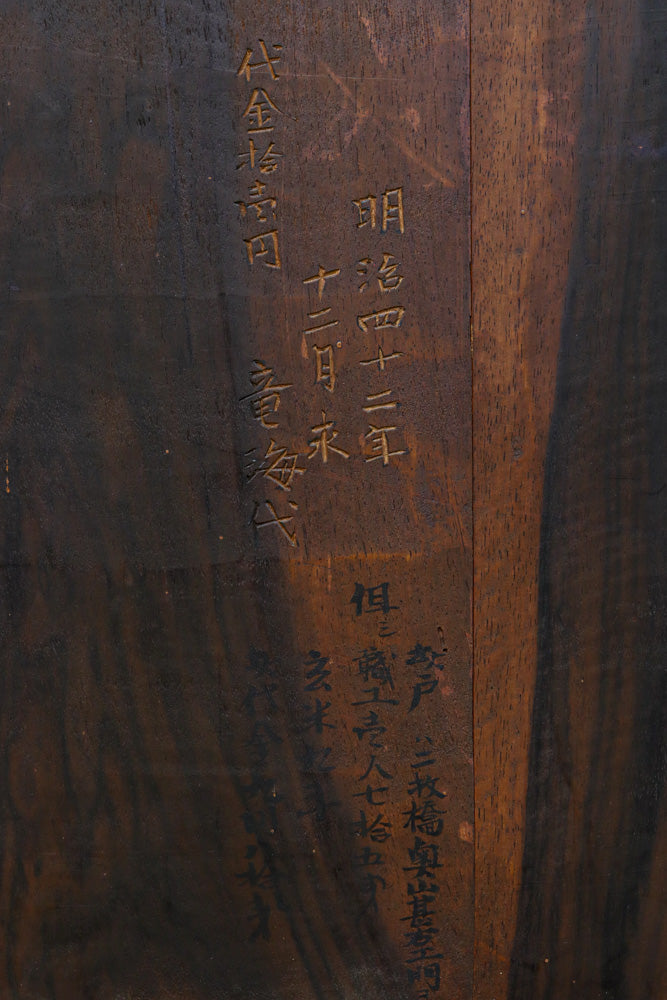 明治四十二年
十二月求
代金拾壱円
竜海代
戸ハ二枚橋奥山甚左エ門
但ミ職工壱人七拾五
玄米
代金